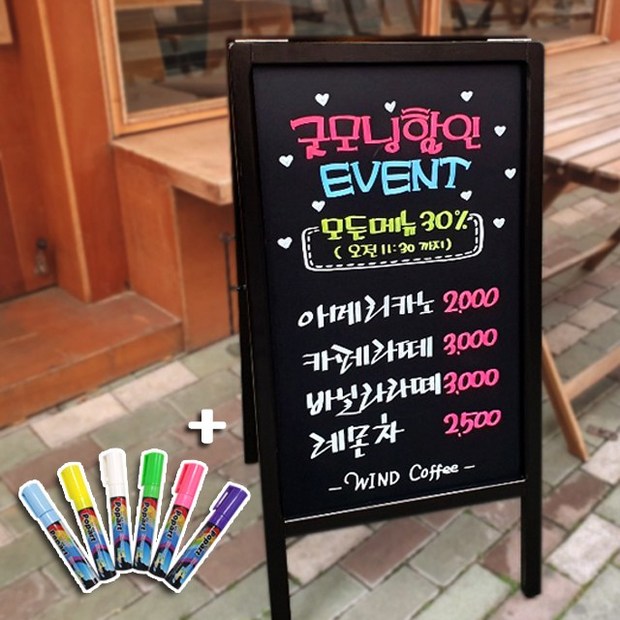 굿모닝할인
EVENT
모든메뉴 30%
( 오전 11:30 까지)
아메리카노 2,000
카페라떼 3,000
바닐라라떼 3,000
레몬차 2,500
- WIND Coffee -
+
Popart
Popart
Popart
Popart
Popart
Popart